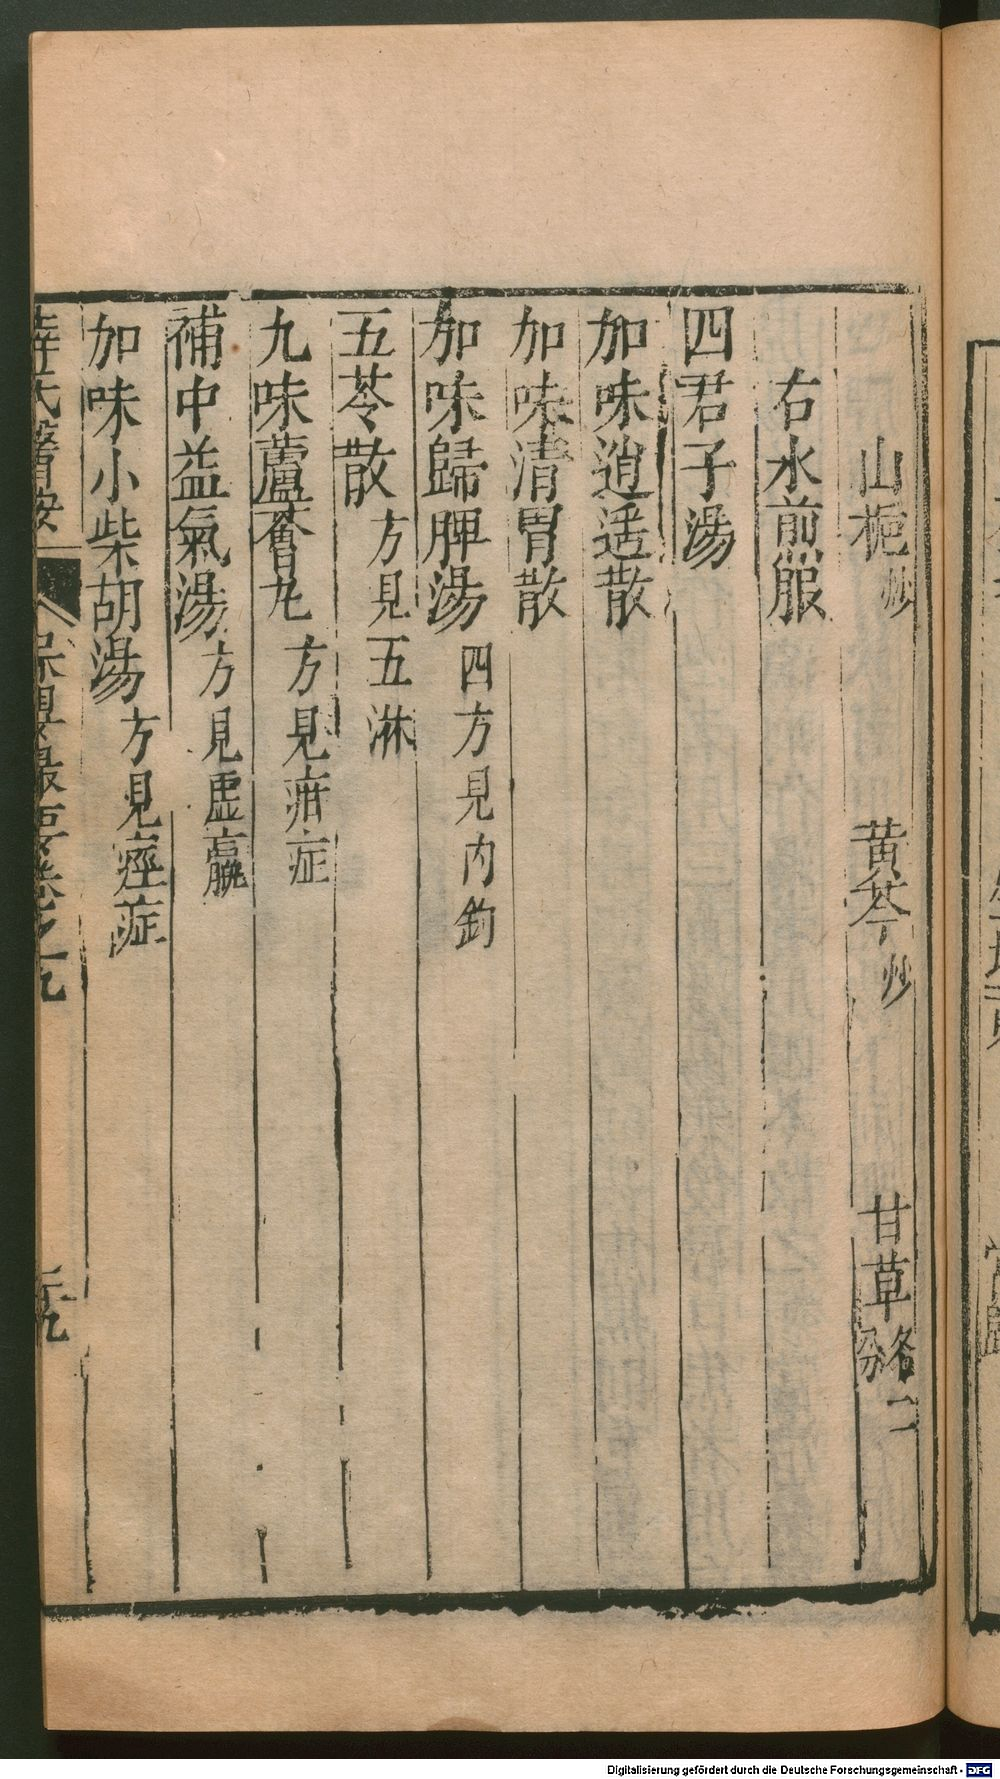 山梔炒　黄芩炒　甘草各二分
右水煎服
四君子湯
加味逍遥散
加味清胃散
加味歸脾湯四方見内釣
五苓散方見五淋
九味蘆薈丸方見疳症
補中益氣湯方見虚羸
加味小柴胡湯方見痙症
薛氏醫按　保嬰撮要卷之九
Digitalisierung gefördert durch die Deutsche Forschungsgemeinschaft - DFG